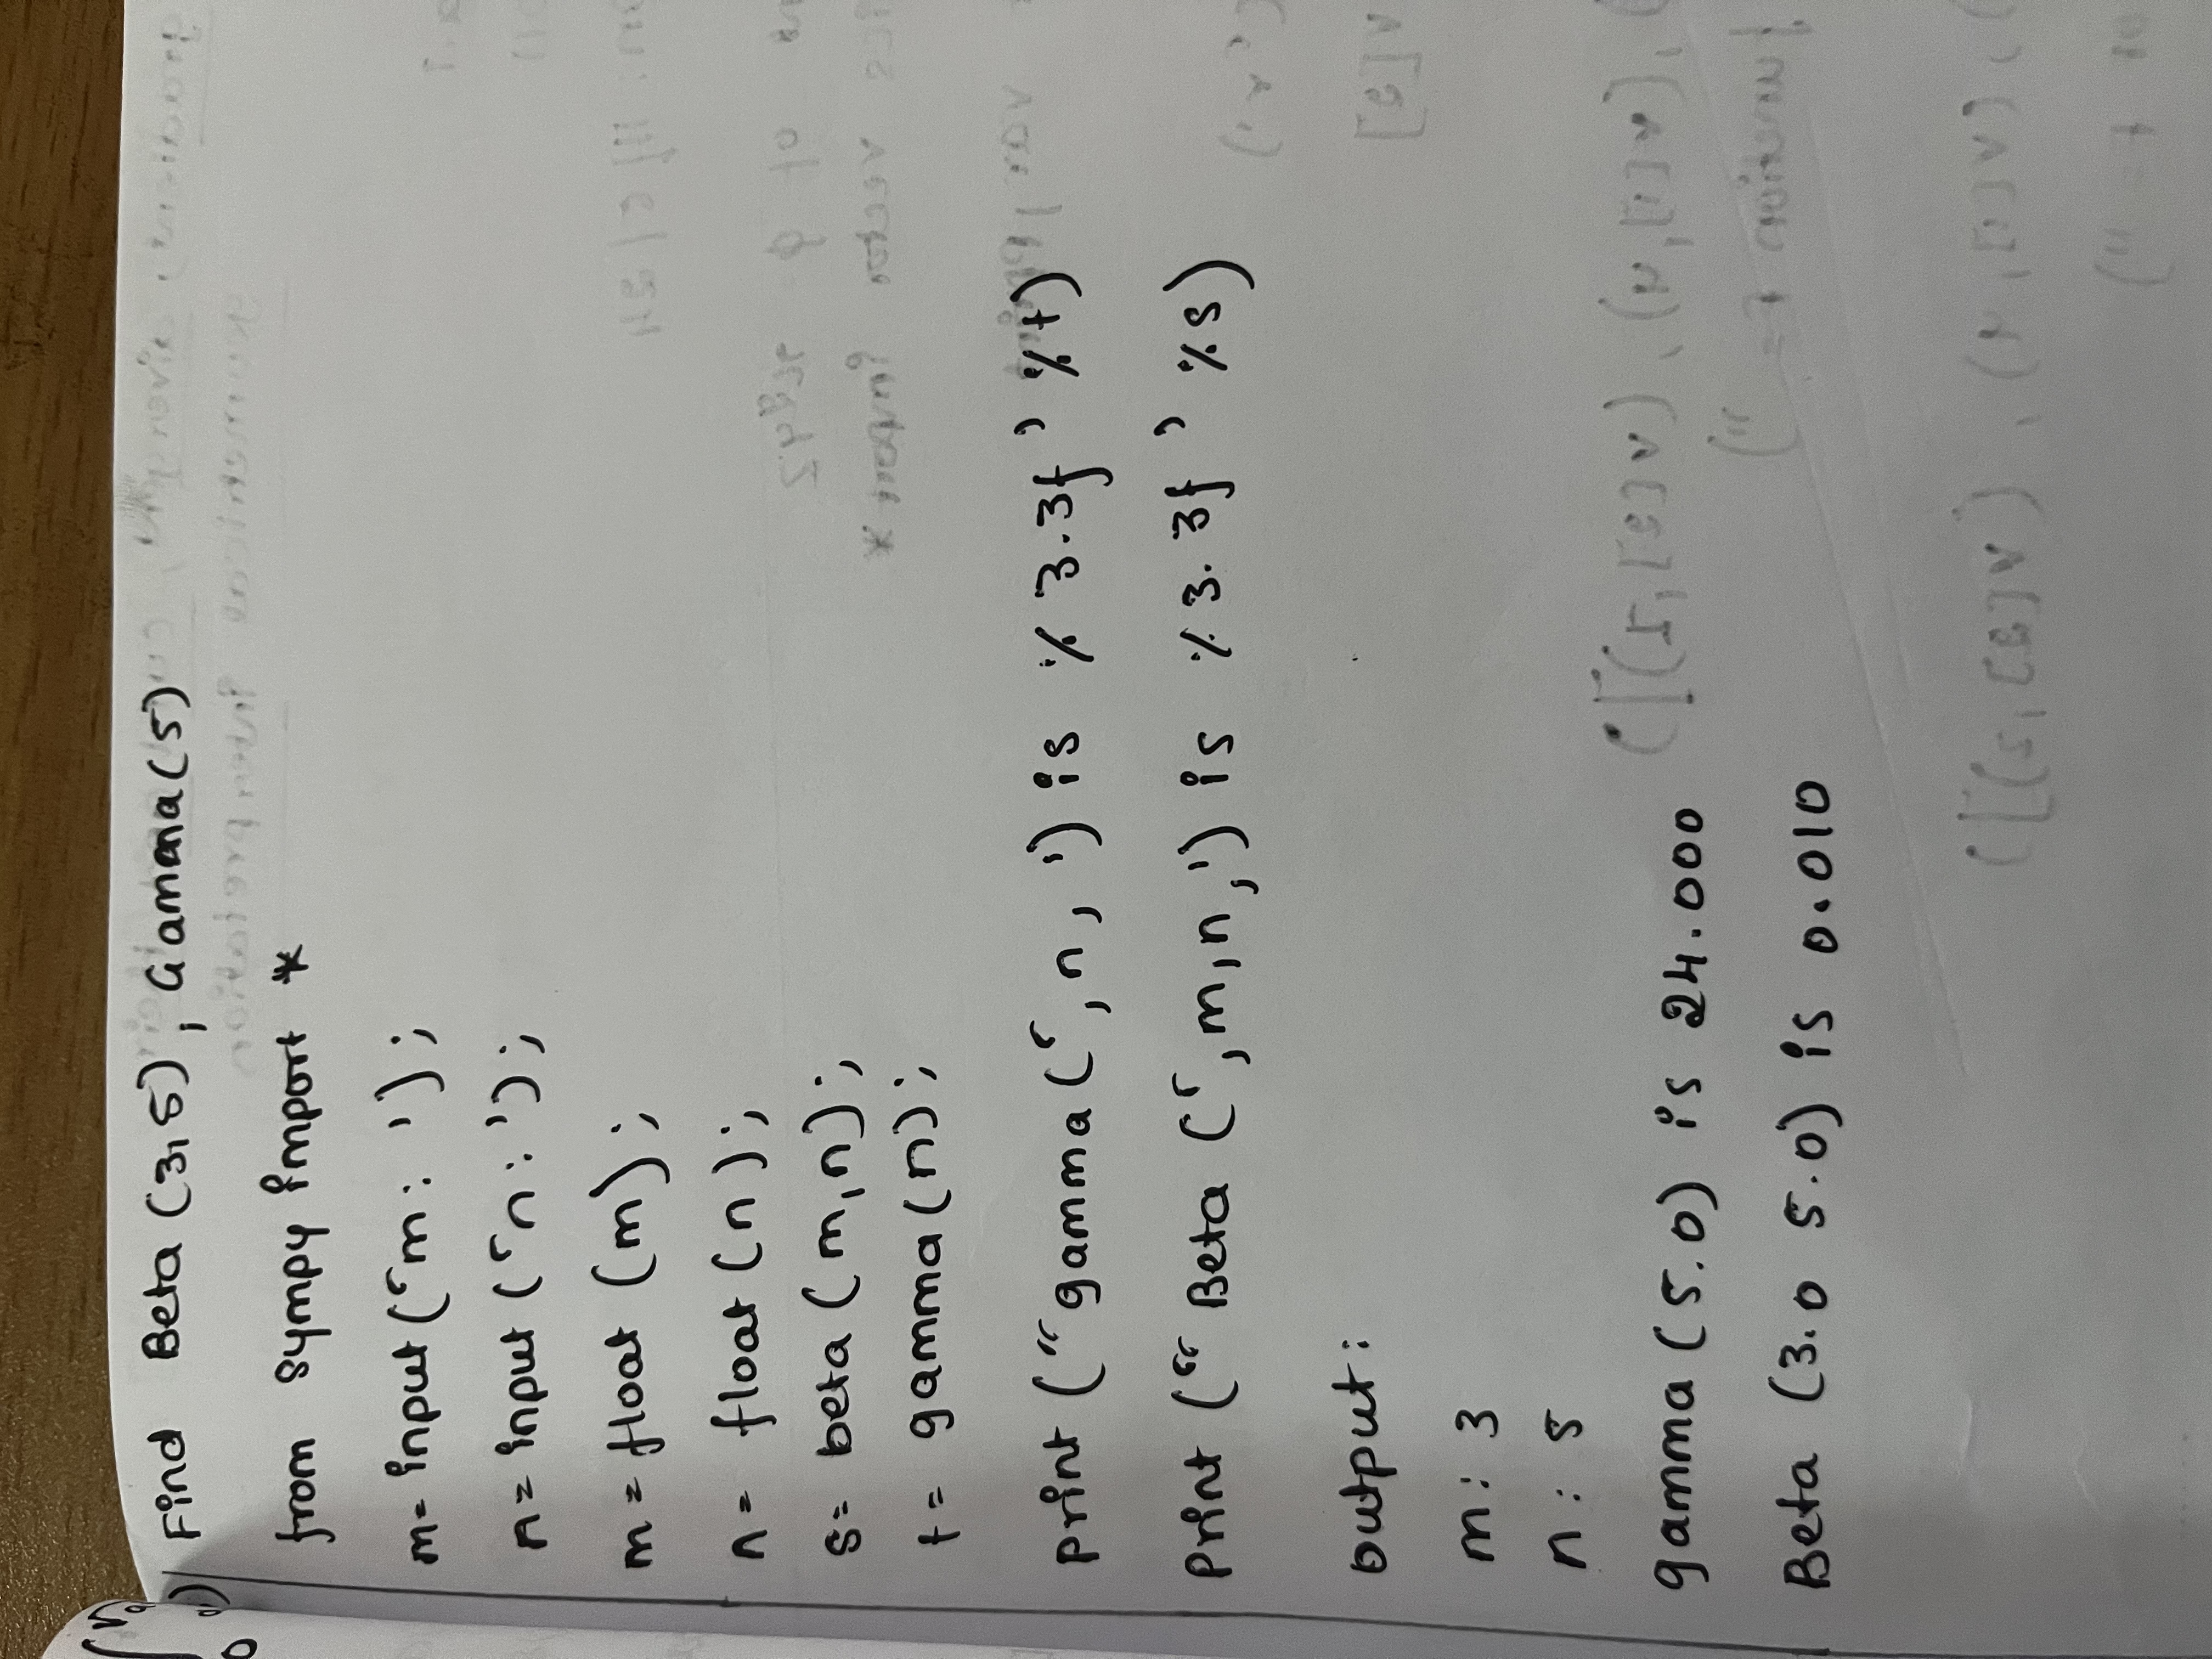 Find Beta (3,5), Gamma(5)
from sympy import *
m= input ('m: ');
n= input ('n: ');
m= float (m);
n= float (n);
s= beta (m,n);
t= gamma(n);
print (“gamma(‘,n, ’) is % 3.3f ’ %t)
Print (“ Beta (‘,m,n,’) is % 3.3f ’ %s)
output:
m: 3
n: 5
gamma (5.0) is 24.000
Beta (3.0 5.0) is 0.010